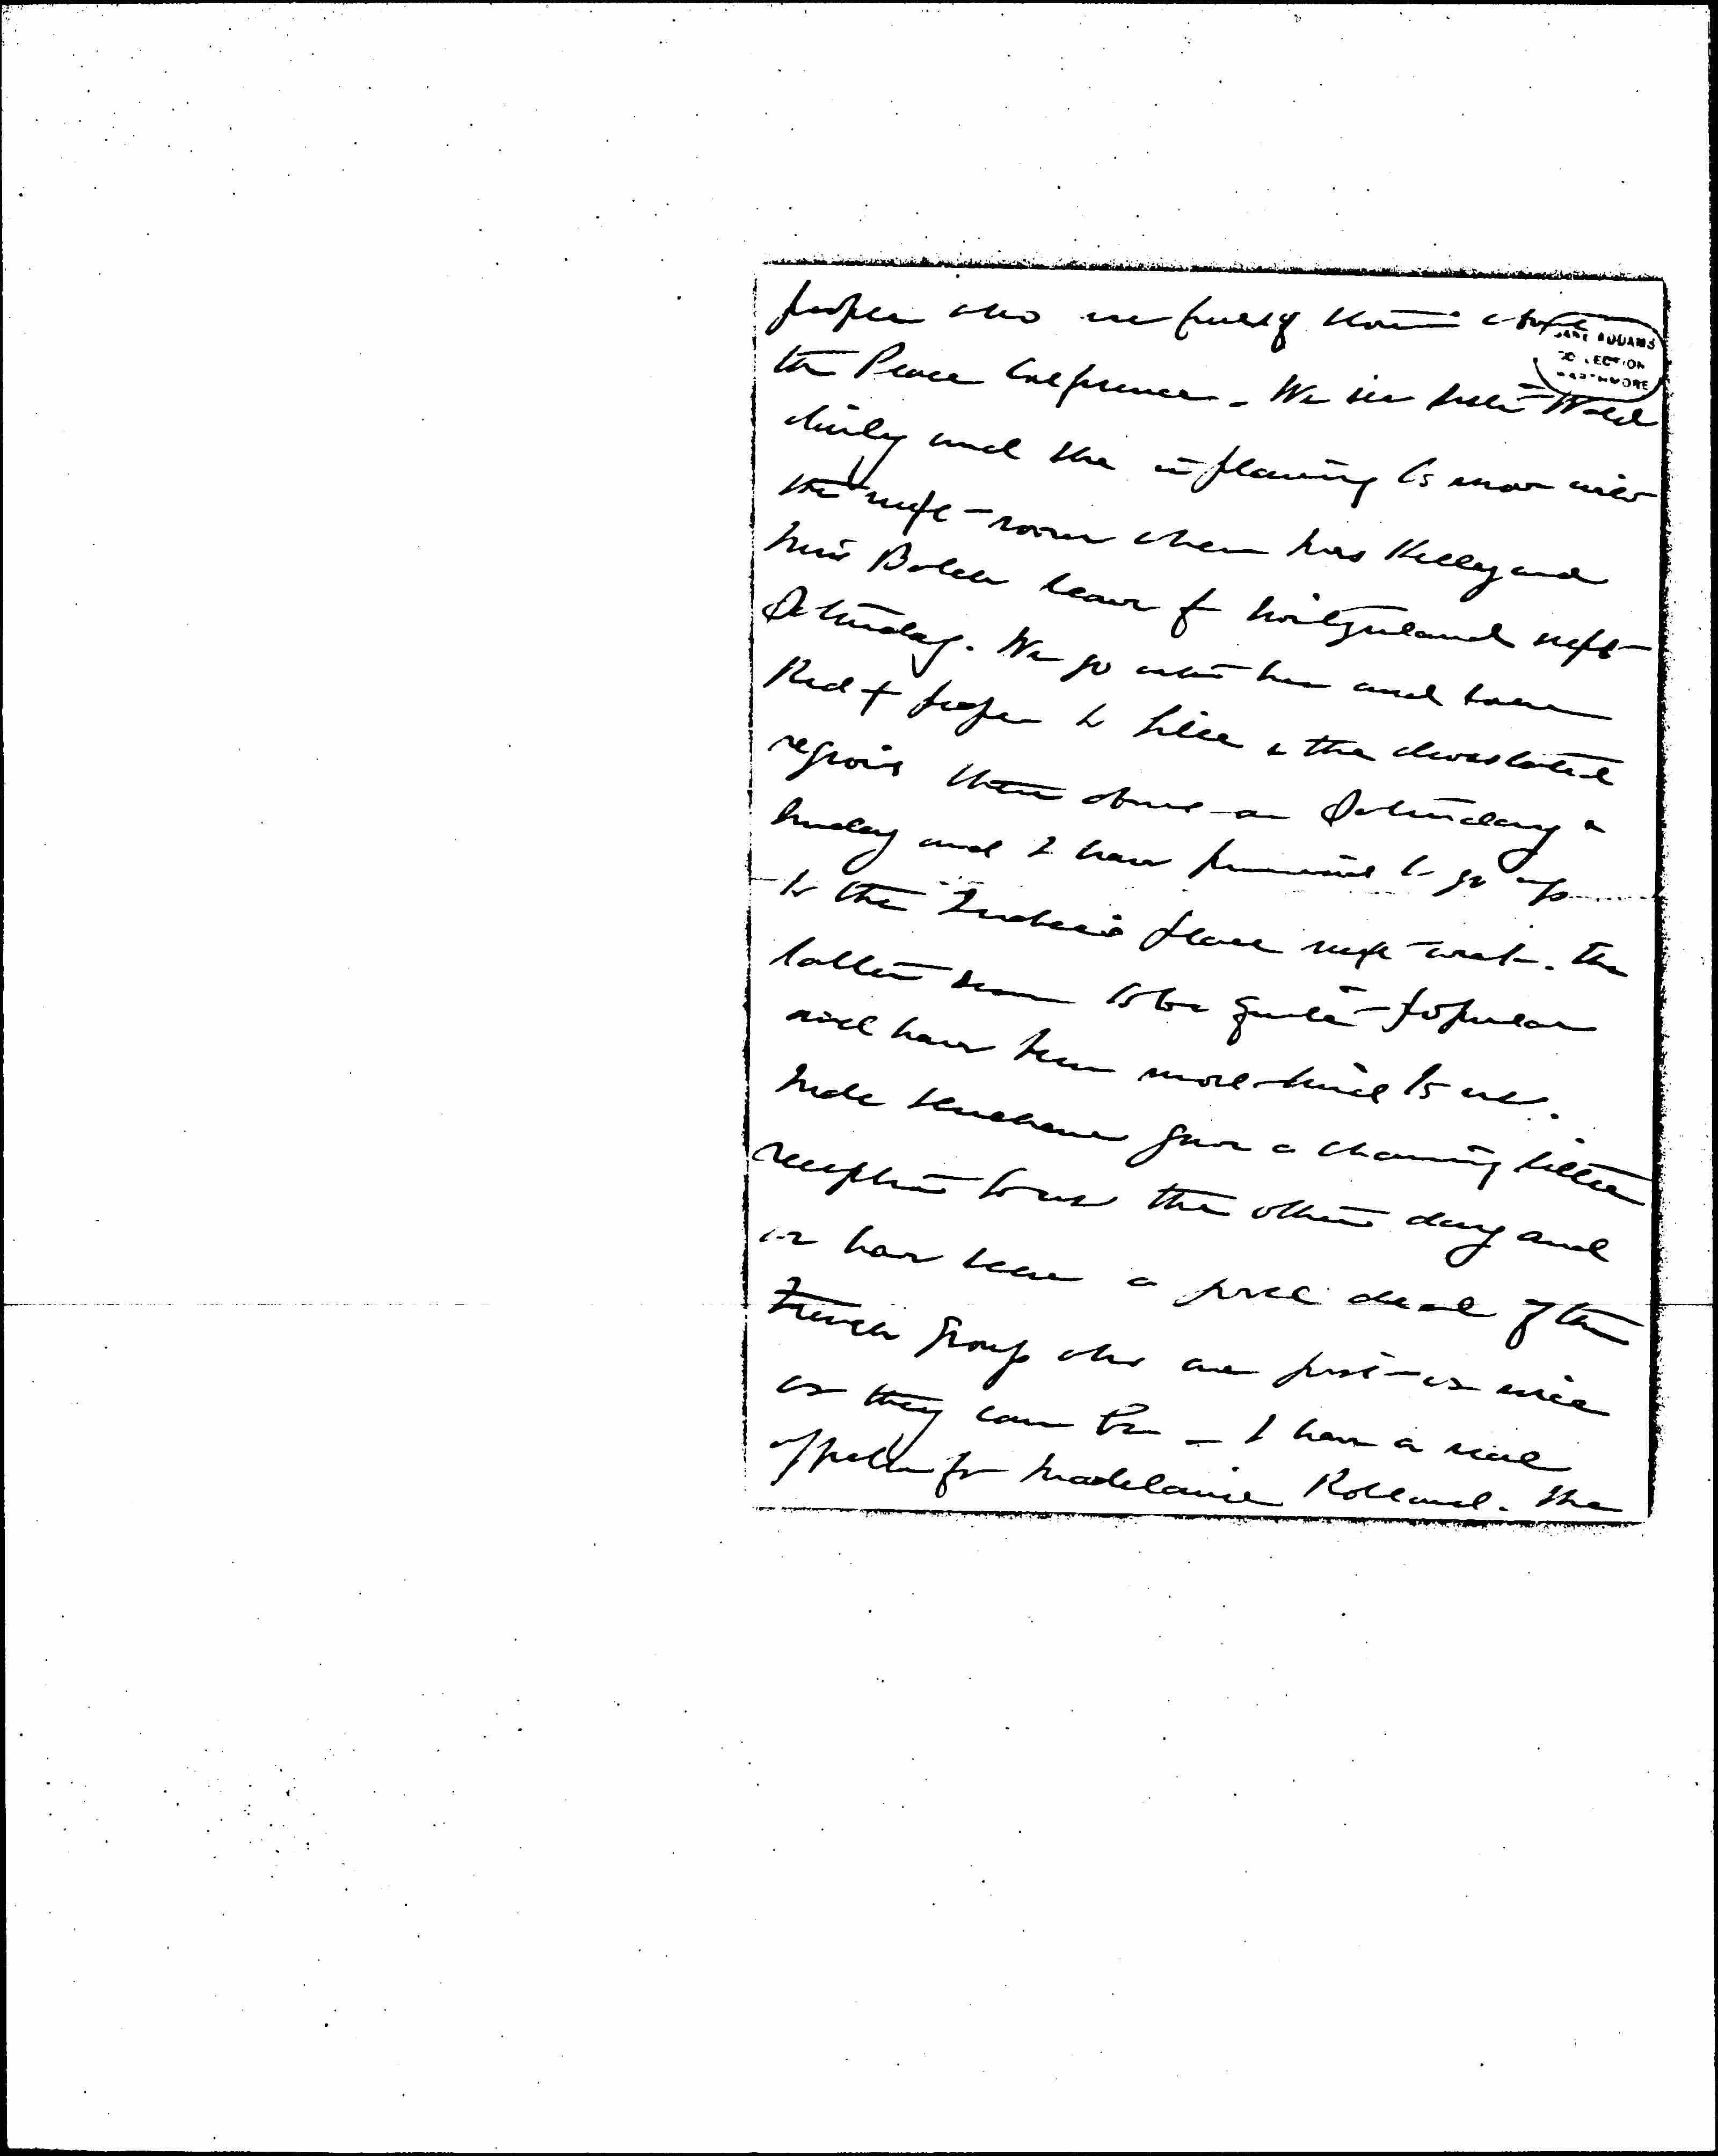 people who are
the Peace Conference. We see Miss Wald
daily and she is planning to move into
the next room when Mrs Kelley and
Miss Balch leave for Switzerland next
Saturday. We go with her and some
Red + people to Lille & the devastated
regions there about on Saturday &
Sunday and I have promised to go up
to the place next week. The
latter seem to be quite popular
and have been most kind to us.
Mde Duchene gave a charming little
reception to us the other day and
we have seen a good deal of the
French Group who are just as nice
as they can be – I have a real
for Madelaine Rolland. She
JANE ADDAMS
COLLECTION
SWARTHMORE